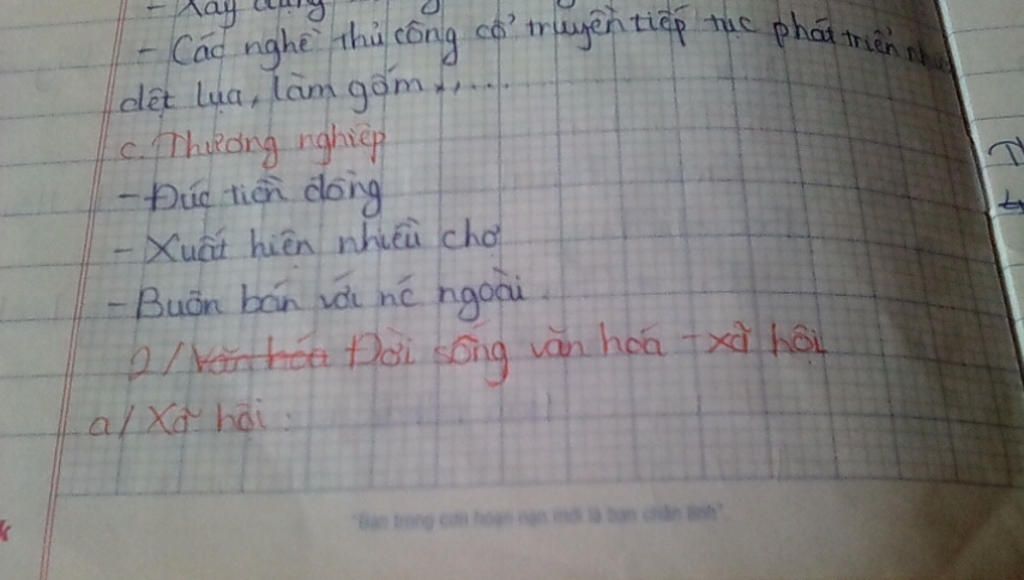 - Xây dựng
- Các nghề thủ công cổ truyền tiếp tục phát triển như
dệt lụa, làm gốm,....
c. Thương nghiệp
- Đúc tiền đồng
- Xuất hiện nhiều chợ
- Buôn bán với nc ngoài.
2/ Văn hóa Đời sống văn hoá - xã hội
a/ Xã hội:
"Bạn trong cơn hoạn nạn mới là bạn chân tình"